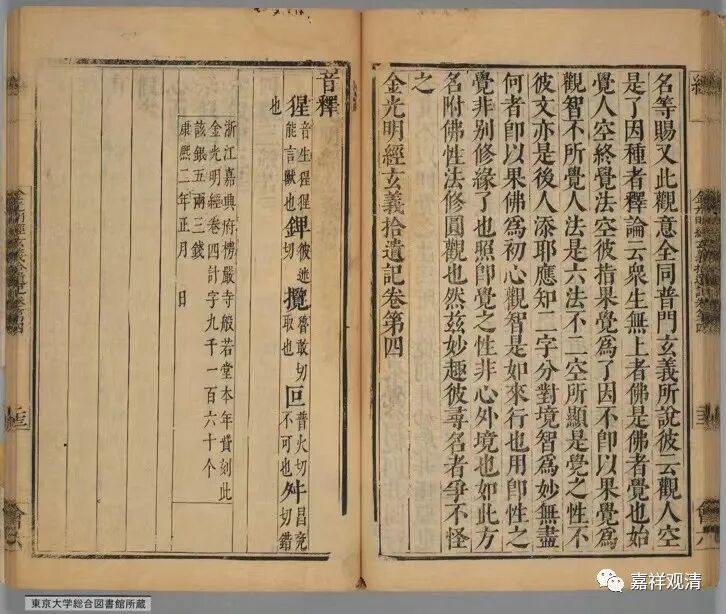 名等賜又此觀意全同普門玄義所說彼云觀人空
是了因種者釋論云衆生無上者佛是佛者覺也始
覺人空終覺法空彼指果覺爲了因不卽以果覺爲
觀智不所覺人法是六法不二空所顯是覺之性不
彼文亦是後人添耶應知二字分對境智爲妙無盡
何者卽以果佛爲初心觀智是如來行也用卽性之
覺非别修緣了也照卽覺之性非心外境也如此方
名附佛性法修圓觀也然茲妙趣彼尋名者爭不怪
之
金光明經玄義拾遺記卷第四
音釋
猩 音生猩猩能言獸也 鉀 彼迷切 攬 魯敢切取也 叵 普火切不可也 舛 昌兗切錯
也
浙江嘉興府楞嚴寺般若堂本年貲刻此
金光明經卷四計字九千一百六十个
該銀五兩三錢
康熙二年正月 日
東京大学総合図書館所蔵
嘉祥观清